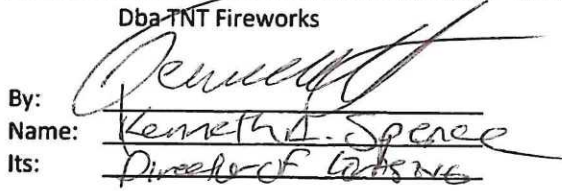 Dba TNT Fireworks
By:
Name: Kenneth A. Spence
Its: Director of Leasing